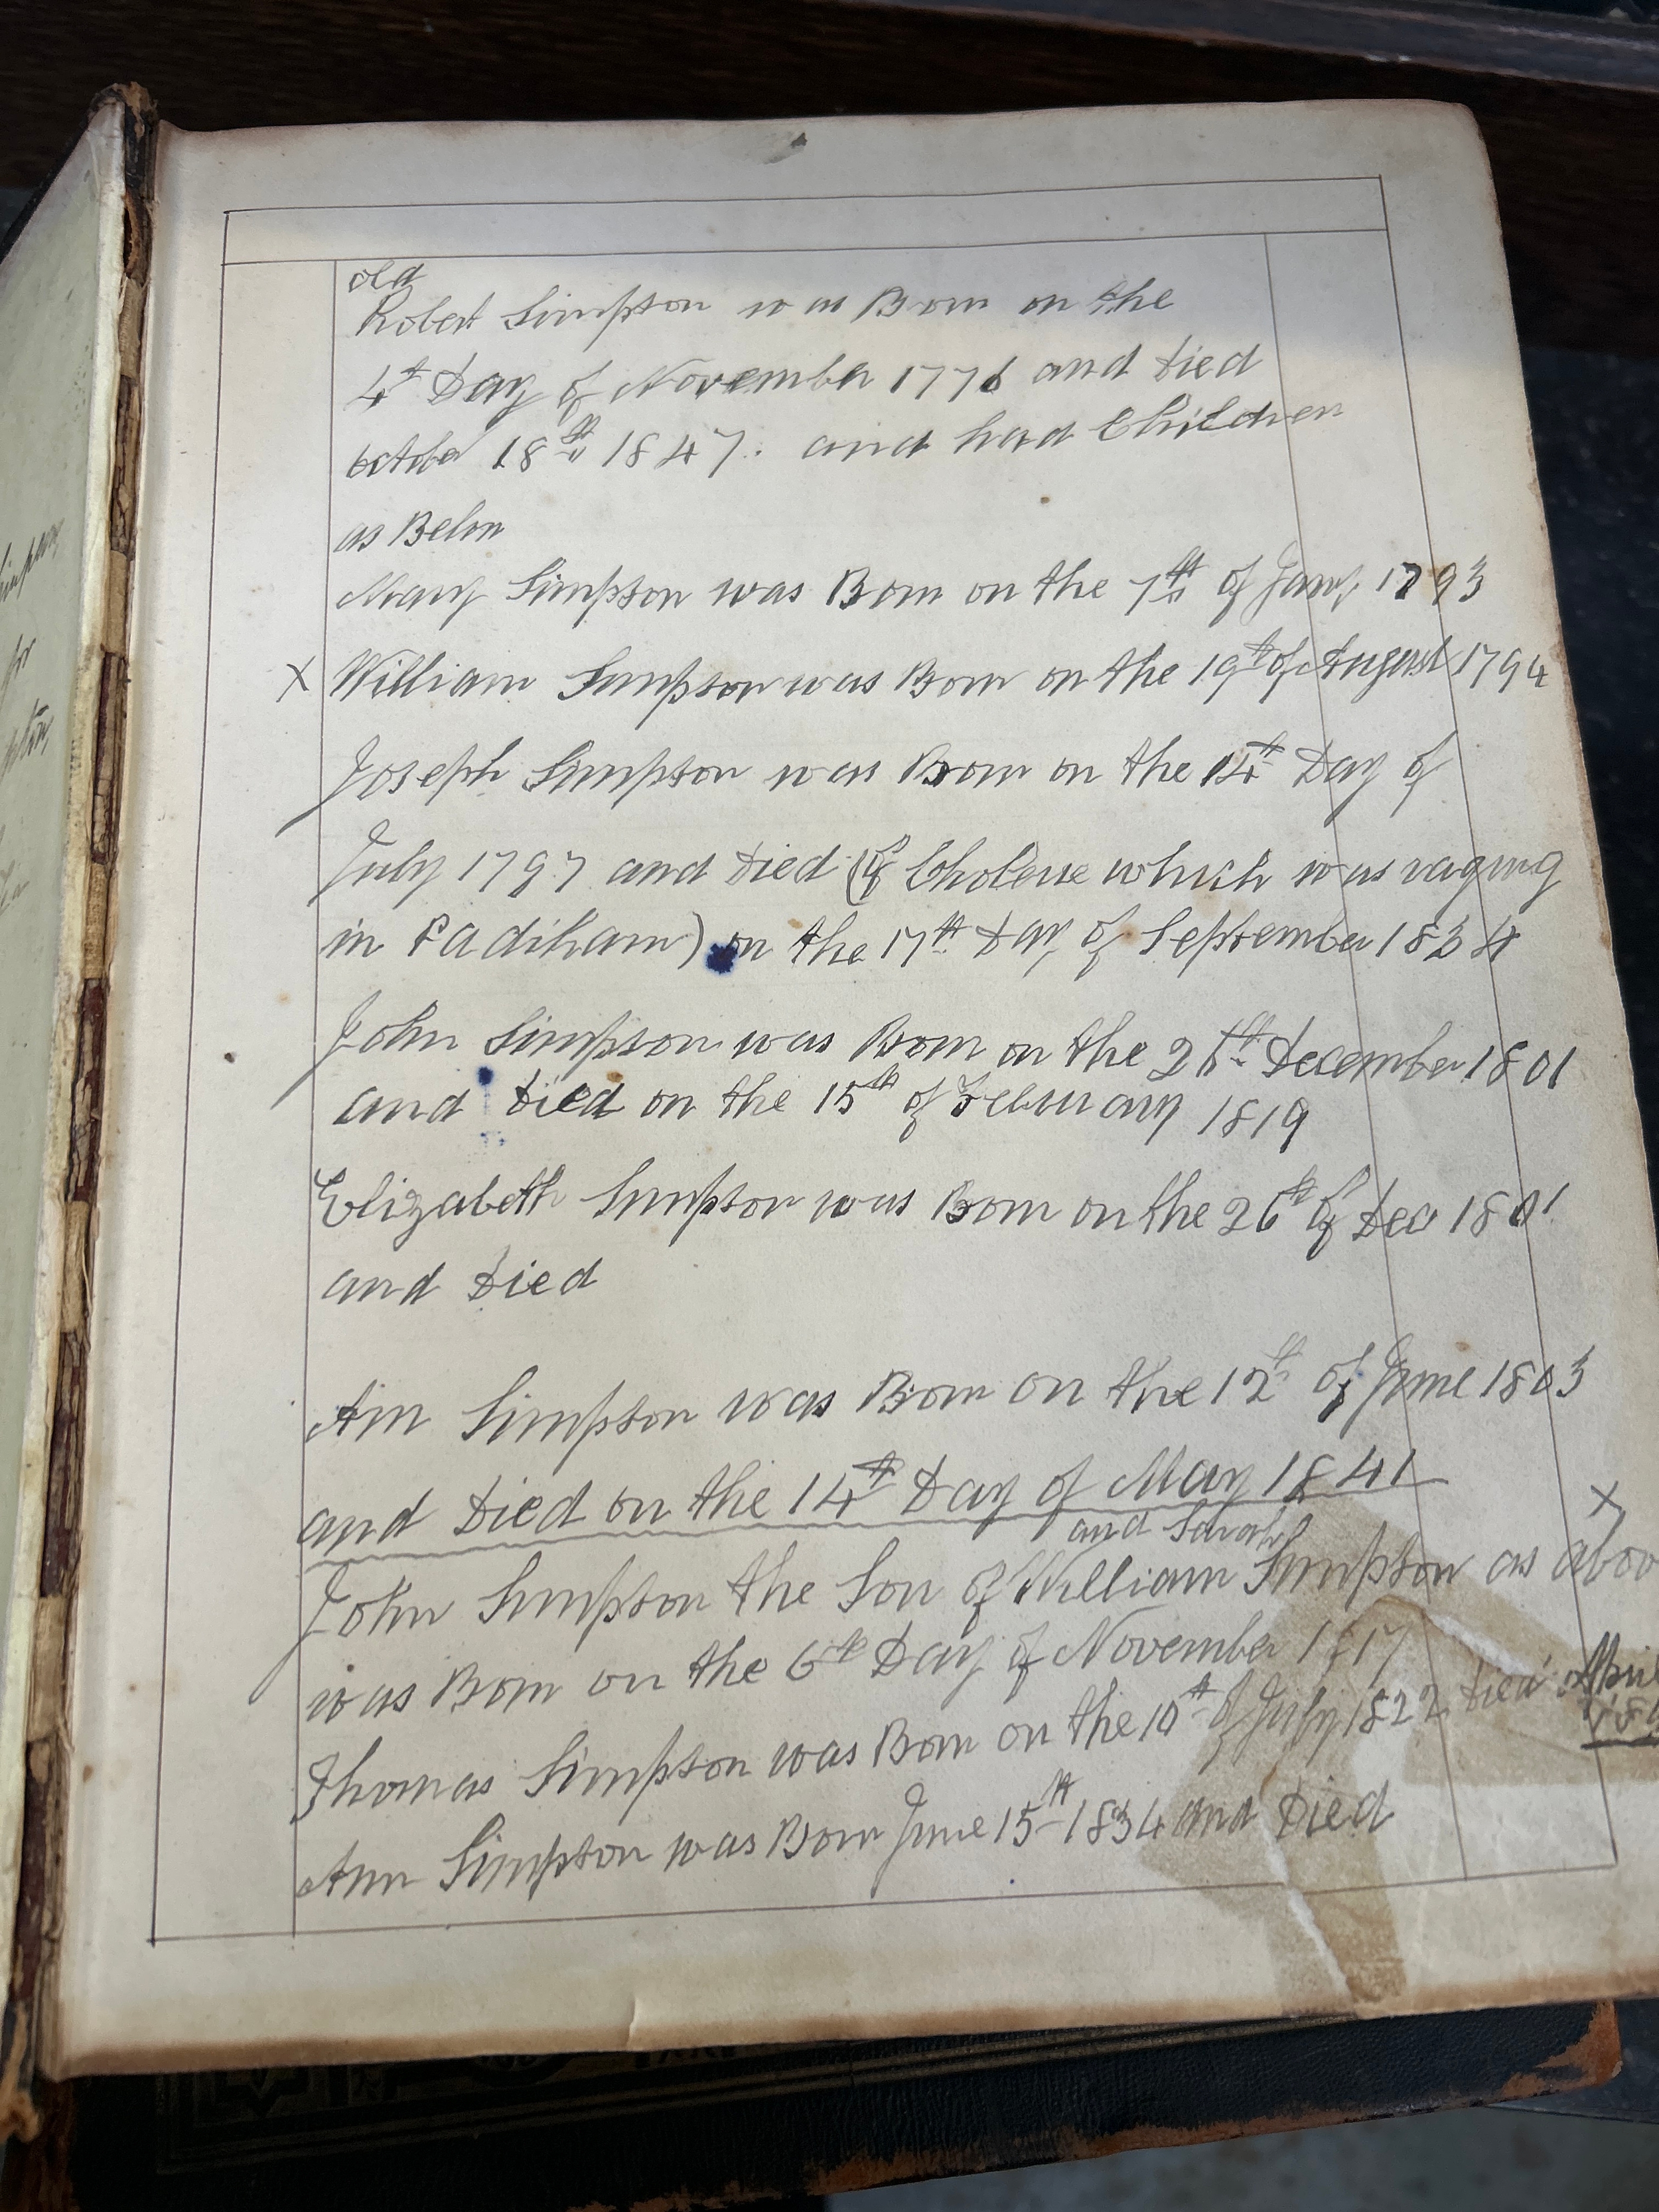 old
Robert Simpson was Born on the
4th Day of November 1776 and Died
October 18th 1847. and had Children
as Below
Mary Simpson was Born on the 7th of Jany. 1793
X William Simpson was Born on the 19th of August 1794
Joseph Simpson was Born on the 14th Day of
July 1797 and Died (of Cholere which was raging
in Padiham) on the 17th Day of September 1834
John Simpson was Born on the December 1801
and Died on the 15th of February 1819
Elizabeth Simpson was Born on the 26th of Dec 1801
and Died
Ann Simpson was Born on the 12th of June 1803
and Died on the 14th Day of May 1841
and Sarah X
John Simpson the Son of William Simpson as aboo
was Born on the 6th Day of November 1817
Thomas Simpson was Born on the 10th of July 1822 Died April
Ann Simpson was Born June 15th 1834 and Died